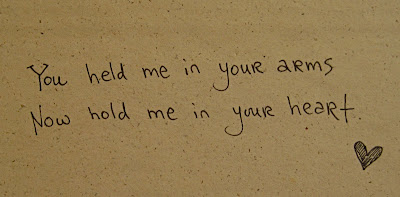 You held me in your arms
Now hold me in your heart.